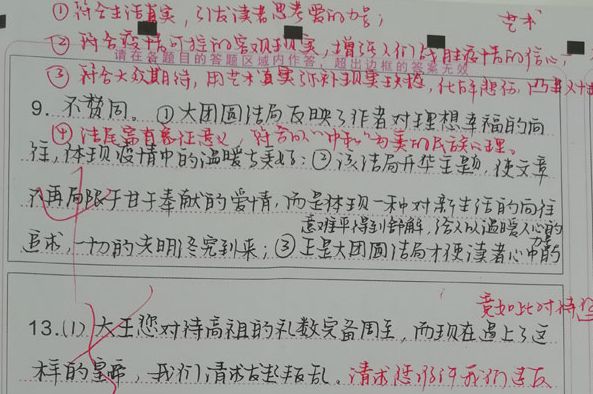 ①符合生活真实，引发读者思考爱的力量；
艺术
②符合疫情可控的客观现实，增强人们战胜疫情的信心；
请在各题目的答题区域内作答，超出边框的答案无效
③符合大众期待，用艺术真实弥补现实缺憾，化解悲伤，
9. 不赞同。①大团圆结局反映了作者对理想幸福的向
④结尾富有象征意义，符合以“中和”为美的民族心理。
往，体现疫情中的温暖与美好；②该结局升华主题，使文章
不再局限于甘于奉献的爱情，而是体现一种对新生活的向往
意难平得到舒解，给人以温暖人心的
力量
追求，一切的文明终究到来；③正是大团圆结局才使读者心中的
竟如此对待
13.(1) 大王您对待高祖的礼数完备周全，而现在遇上了这
样的皇帝，我们请求发起叛乱。请求您允许我们造反